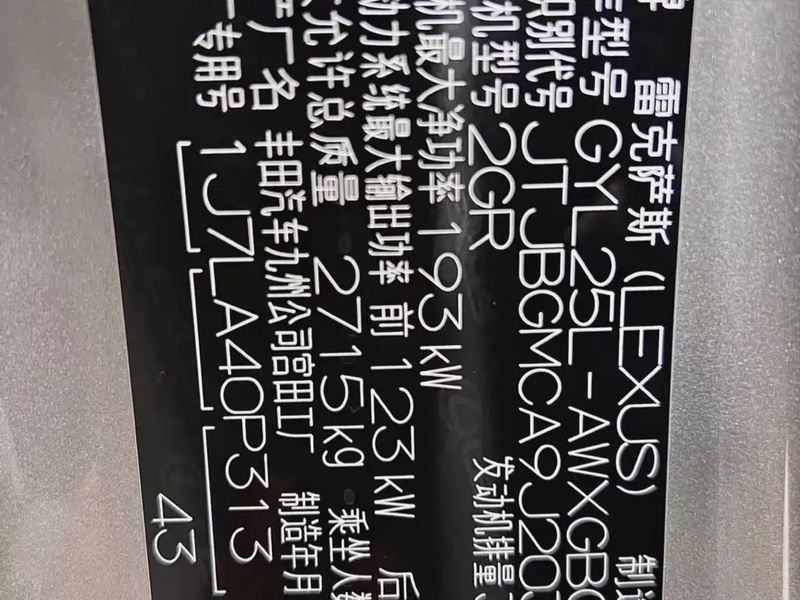 雷克萨斯 (LEXUS) 制造
型号 GYL25L-AWXGB
识别代号 JTJBGMCA9J20
机型号 2GR 发动机排量
机最大净功率 193kW
动力系统最大输出功率 前 123kW 后
允许总质量 2715kg 乘坐人数
产厂名 丰田汽车九州公司宫田工厂 制造年月
专用号 1J7LA40P313
43